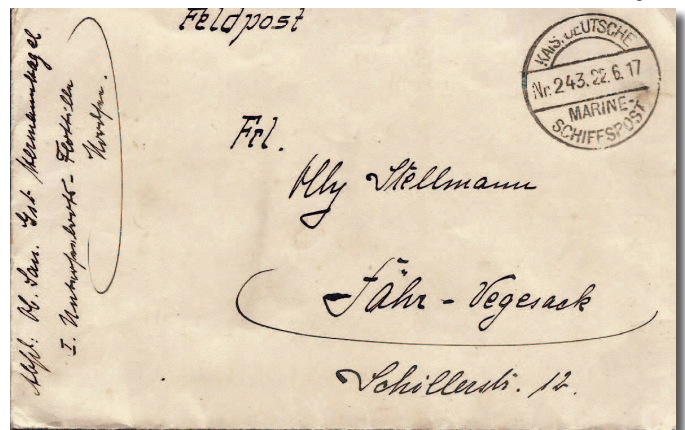 Feldpost
KAIS. DEUTSCHE
Nr. 243. 22.6.17
MARINE-
SCHIFFSPOST
Frl.
Olly Stellmann
Fähr - Vegesack
Schillerstr. 12.
Ob. San. Gst.
I. Unterseeboots - Flottille